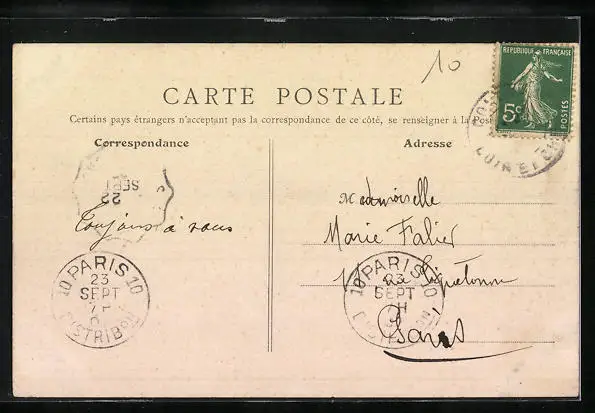 10
RÉPUBLIQUE FRANÇAISE
5c
POSTES
CARTE POSTALE
Certains pays étrangers n'acceptant pas la correspondance de ce côté, se renseigner à la Poste
Correspondance
Adresse
22
SEPT
LOIR ET CHER
Mademoiselle
Toujours à vous
Marie Falier
rue Tiquetonne
Paris
10 PARIS 10
23
SEPT
7H
DISTRIBON
10 PARIS 10
23
SEPT
7H